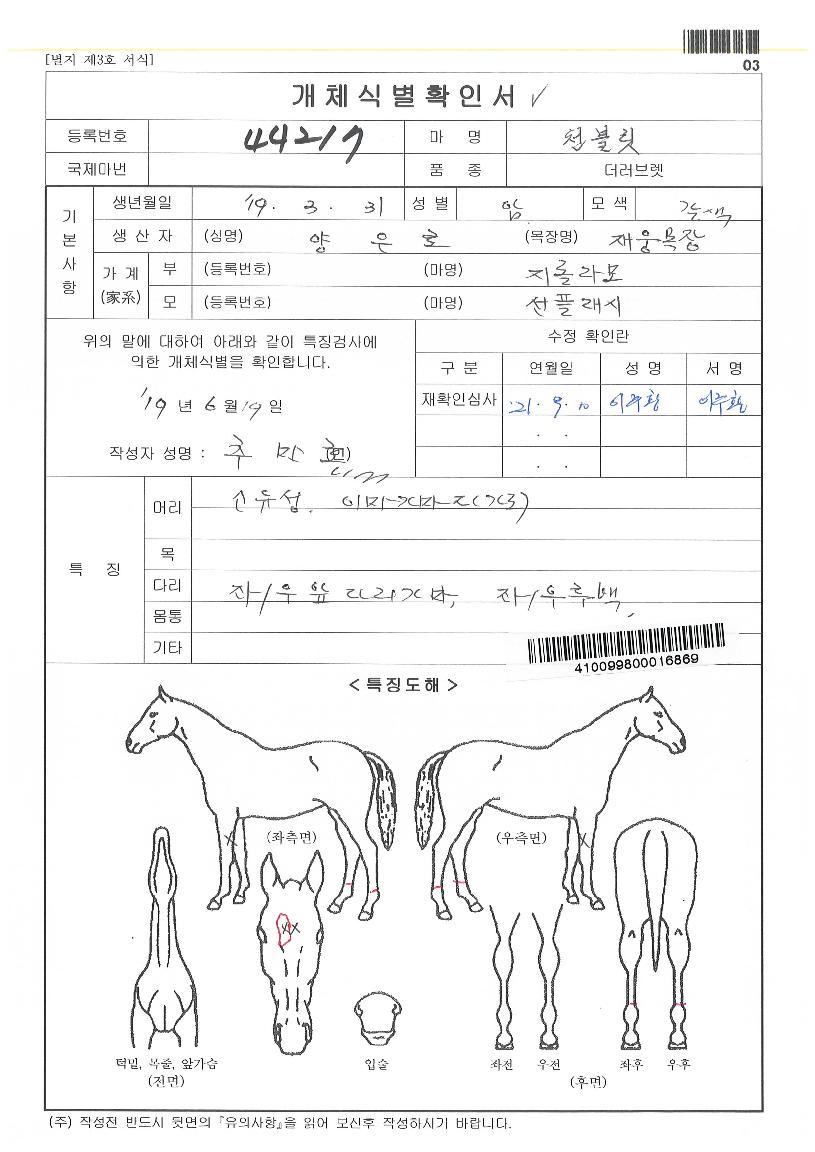 [별지 제3호 서식]
03
개체식별확인서 ✓
등록번호 44217 마 명 천블릿
국제마번 품 종 더러브렛
기본사항
생년월일 '19. 3. 31 성 별 암 모 색 갈색
생 산 자 (싱명) 양 은 호 (목장명) 재웅목장
가 계 (家系) 부 (등록번호) (마명) 지롤라모
모 (등록번호) (마명) 선플래시
위의 말에 대하여 아래와 같이 특징검사에
의한 개체식별을 확인합니다.
'19 년 6 월 19 일
작성자 성명 : 추 만 호 (인)
수정 확인란
구 분 연월일 성 명 서 명
재확인심사 '21. 9. 10
. .
. .
특 징
머리 소유성. 이마가마 2(개)
목
다리 좌/우 앞다리가마, 좌/우후백,
몸통
기타
410099800016869
< 특징도해 >
(좌측면)
(우측면)
턱밑, 목줄, 앞가슴
(전면)
입술
좌전 우전 좌후 우후
(후면)
(주) 작성전 반드시 뒷면의 『유의사항』을 읽어 보신후 작성하시기 바랍니다.